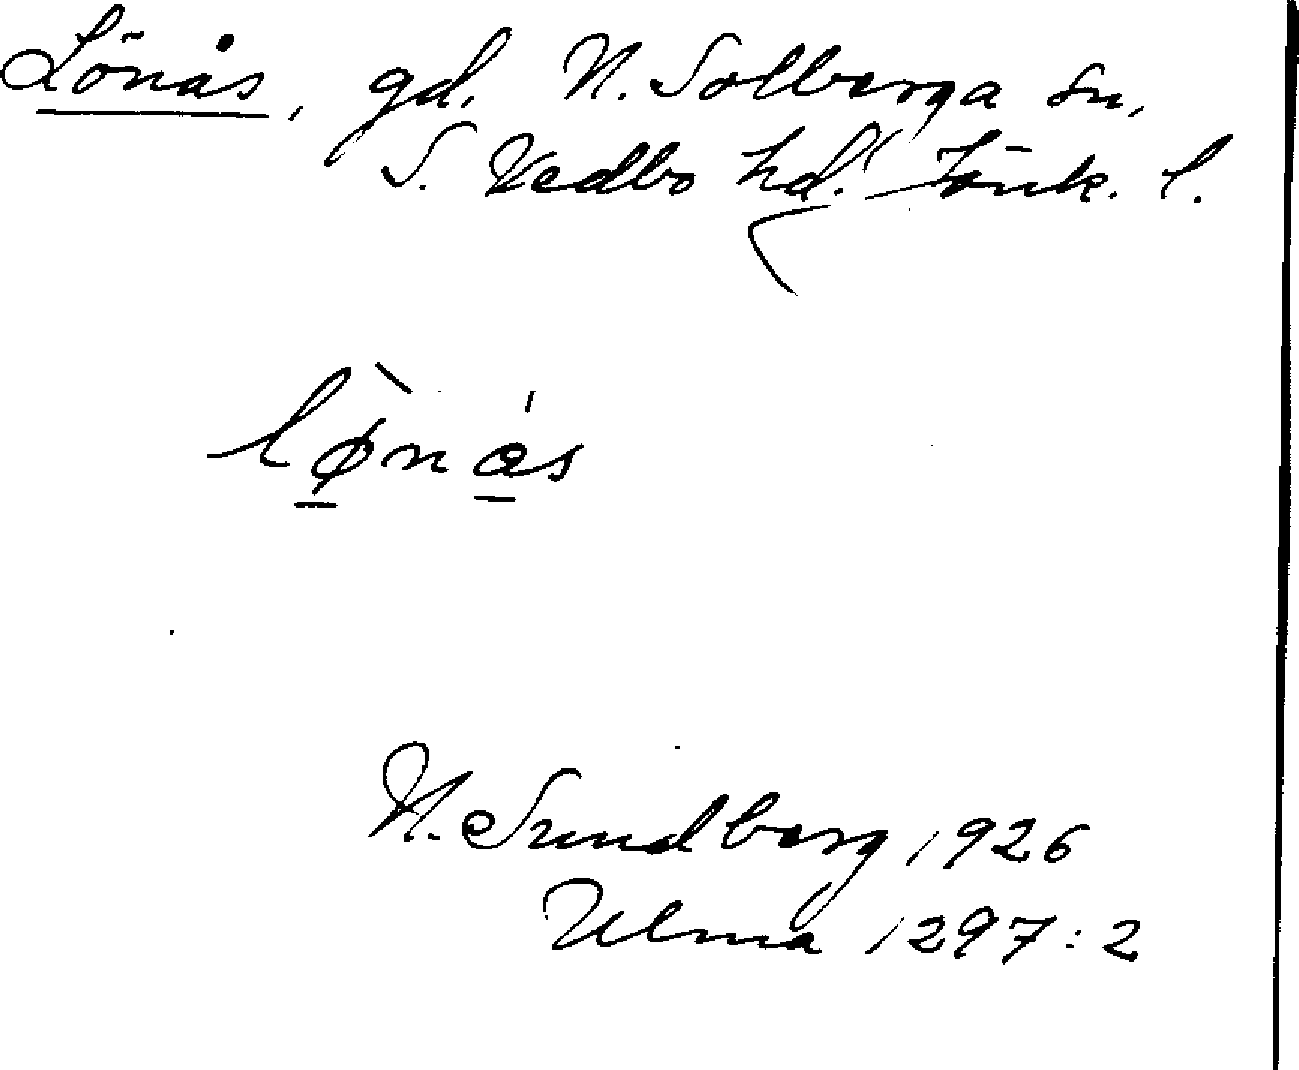 Lönås, gd. N. Solberga sn,
S. Vedbo hd. Jönk. l.
lø̠̀nǻ̠s
N. Sundberg 1926
Ulma 1297:2